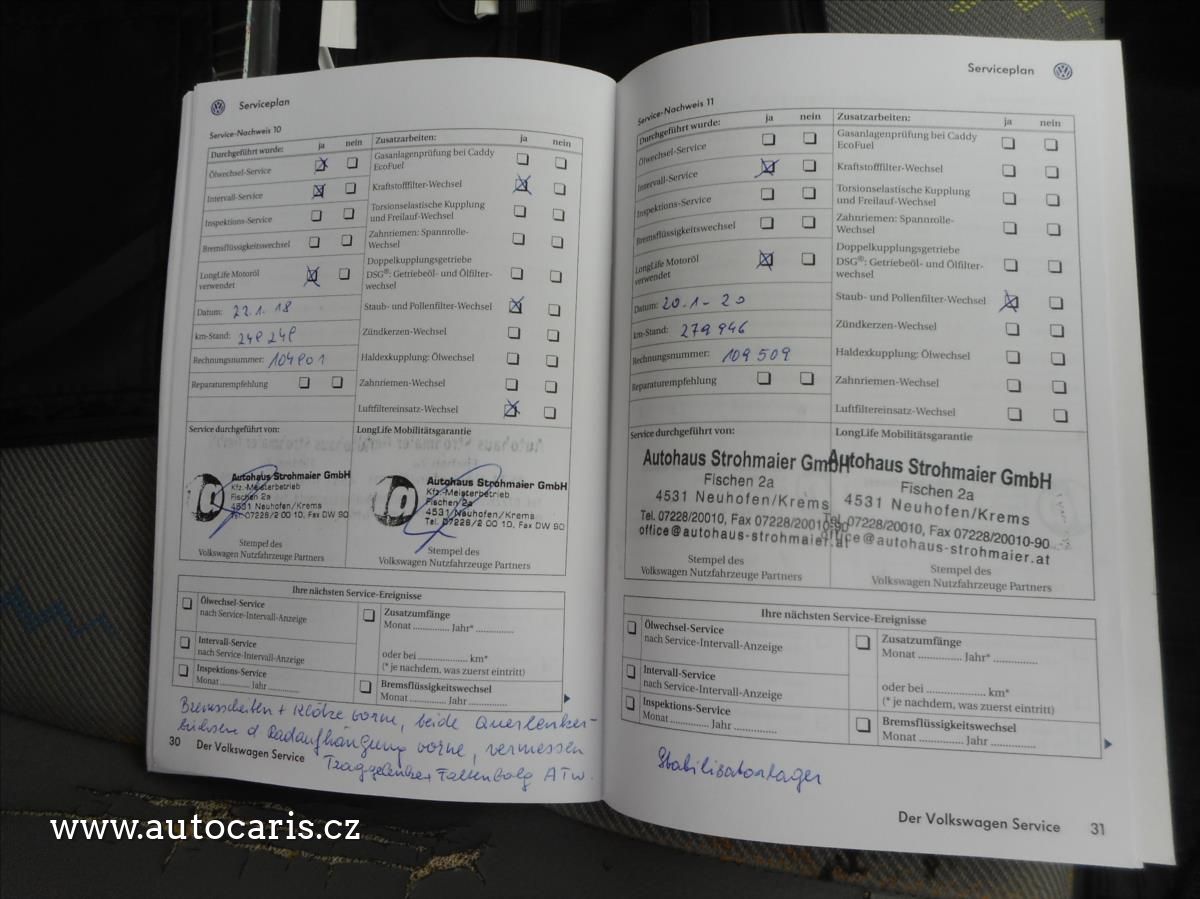 Serviceplan
Service-Nachweis 10
Durchgeführt wurde: ja nein
Ölwechsel-Service
Intervall-Service
Inspektions-Service
Bremsflüssigkeitswechsel
LongLife Motoröl
verwendet
Datum: 22.1.18
km-Stand: 248 248
Rechnungsnummer: 104801
Reparaturempfehlung
Zusatzarbeiten: ja nein
Gasanlagenprüfung bei Caddy
EcoFuel
Kraftstofffilter-Wechsel
Torsionselastische Kupplung
und Freilauf-Wechsel
Zahnriemen: Spannrolle-
Wechsel
Doppelkupplungsgetriebe
DSG®: Getriebeöl- und Ölfilter-
wechsel
Staub- und Pollenfilter-Wechsel
Zündkerzen-Wechsel
Haldexkupplung: Ölwechsel
Zahnriemen-Wechsel
Luftfiltereinsatz-Wechsel
Service durchgeführt von:
Autohaus Strohmaier GmbH
Kfz.-Meisterbetrieb
Fischen 2a
4531 Neuhofen/Krems
Tel. 07228/2 00 10, Fax DW 90
Stempel des
Volkswagen Nutzfahrzeuge Partners
LongLife Mobilitätsgarantie
Autohaus Strohmaier GmbH
Kfz.-Meisterbetrieb
Fischen 2a
4531 Neuhofen/Krems
Tel. 07228/2 00 10, Fax DW 90
Stempel des
Volkswagen Nutzfahrzeuge Partners
Ihre nächsten Service-Ereignisse
Ölwechsel-Service
nach Service-Intervall-Anzeige
Intervall-Service
nach Service-Intervall-Anzeige
Inspektions-Service
Monat ............ Jahr ............
Zusatzumfänge
Monat ............ Jahr* ............
oder bei ................ km*
(* je nachdem, was zuerst eintritt)
Bremsflüssigkeitswechsel
Monat ............ Jahr ............
Bremsscheiben + Klötze vorne, beide Querlenker-
büchsen d Radaufhängung vorne, vermessen
Traggelenke + Faltenbalg ATW.
30 Der Volkswagen Service
Serviceplan
Service-Nachweis 11
Durchgeführt wurde: ja nein
Ölwechsel-Service
Intervall-Service
Inspektions-Service
Bremsflüssigkeitswechsel
LongLife Motoröl
verwendet
Datum: 20.1-20
km-Stand: 279 946
Rechnungsnummer: 109 509
Reparaturempfehlung
Zusatzarbeiten: ja nein
Gasanlagenprüfung bei Caddy
EcoFuel
Kraftstofffilter-Wechsel
Torsionselastische Kupplung
und Freilauf-Wechsel
Zahnriemen: Spannrolle-
Wechsel
Doppelkupplungsgetriebe
DSG®: Getriebeöl- und Ölfilter-
wechsel
Staub- und Pollenfilter-Wechsel
Zündkerzen-Wechsel
Haldexkupplung: Ölwechsel
Zahnriemen-Wechsel
Luftfiltereinsatz-Wechsel
Service durchgeführt von:
Autohaus Strohmaier GmbH
Fischen 2a
4531 Neuhofen/Krems
Tel. 07228/20010, Fax 07228/20010-90
office@autohaus-strohmaier.at
Stempel des
Volkswagen Nutzfahrzeuge Partners
LongLife Mobilitätsgarantie
Autohaus Strohmaier GmbH
Fischen 2a
4531 Neuhofen/Krems
Tel. 07228/20010, Fax 07228/20010-90
office@autohaus-strohmaier.at
Stempel des
Volkswagen Nutzfahrzeuge Partners
Ihre nächsten Service-Ereignisse
Ölwechsel-Service
nach Service-Intervall-Anzeige
Intervall-Service
nach Service-Intervall-Anzeige
Inspektions-Service
Monat ............ Jahr ............
Zusatzumfänge
Monat ............ Jahr* ............
oder bei ................ km*
(* je nachdem, was zuerst eintritt)
Bremsflüssigkeitswechsel
Monat ............ Jahr ............
Stabilisatorlager
Der Volkswagen Service 31
www.autocaris.cz